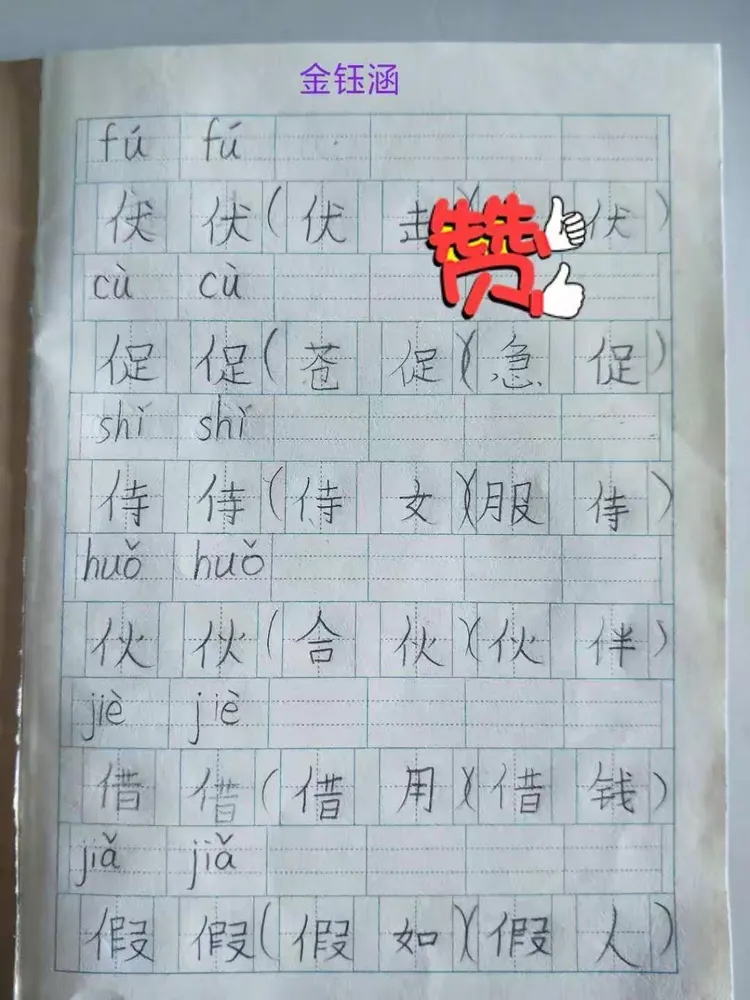 金钰涵
fú fú
伏 伏(伏 击)( 伏)
赞
cù cù
促 促(苍 促)(急 促)
shǐ shǐ
侍 侍(侍 女)(服 侍)
huǒ huǒ
伙 伙(合 伙)(伙 伴)
jiè jiè
借 借(借 用)(借 钱)
jiǎ jiǎ
假 假(假 如)(假 人)